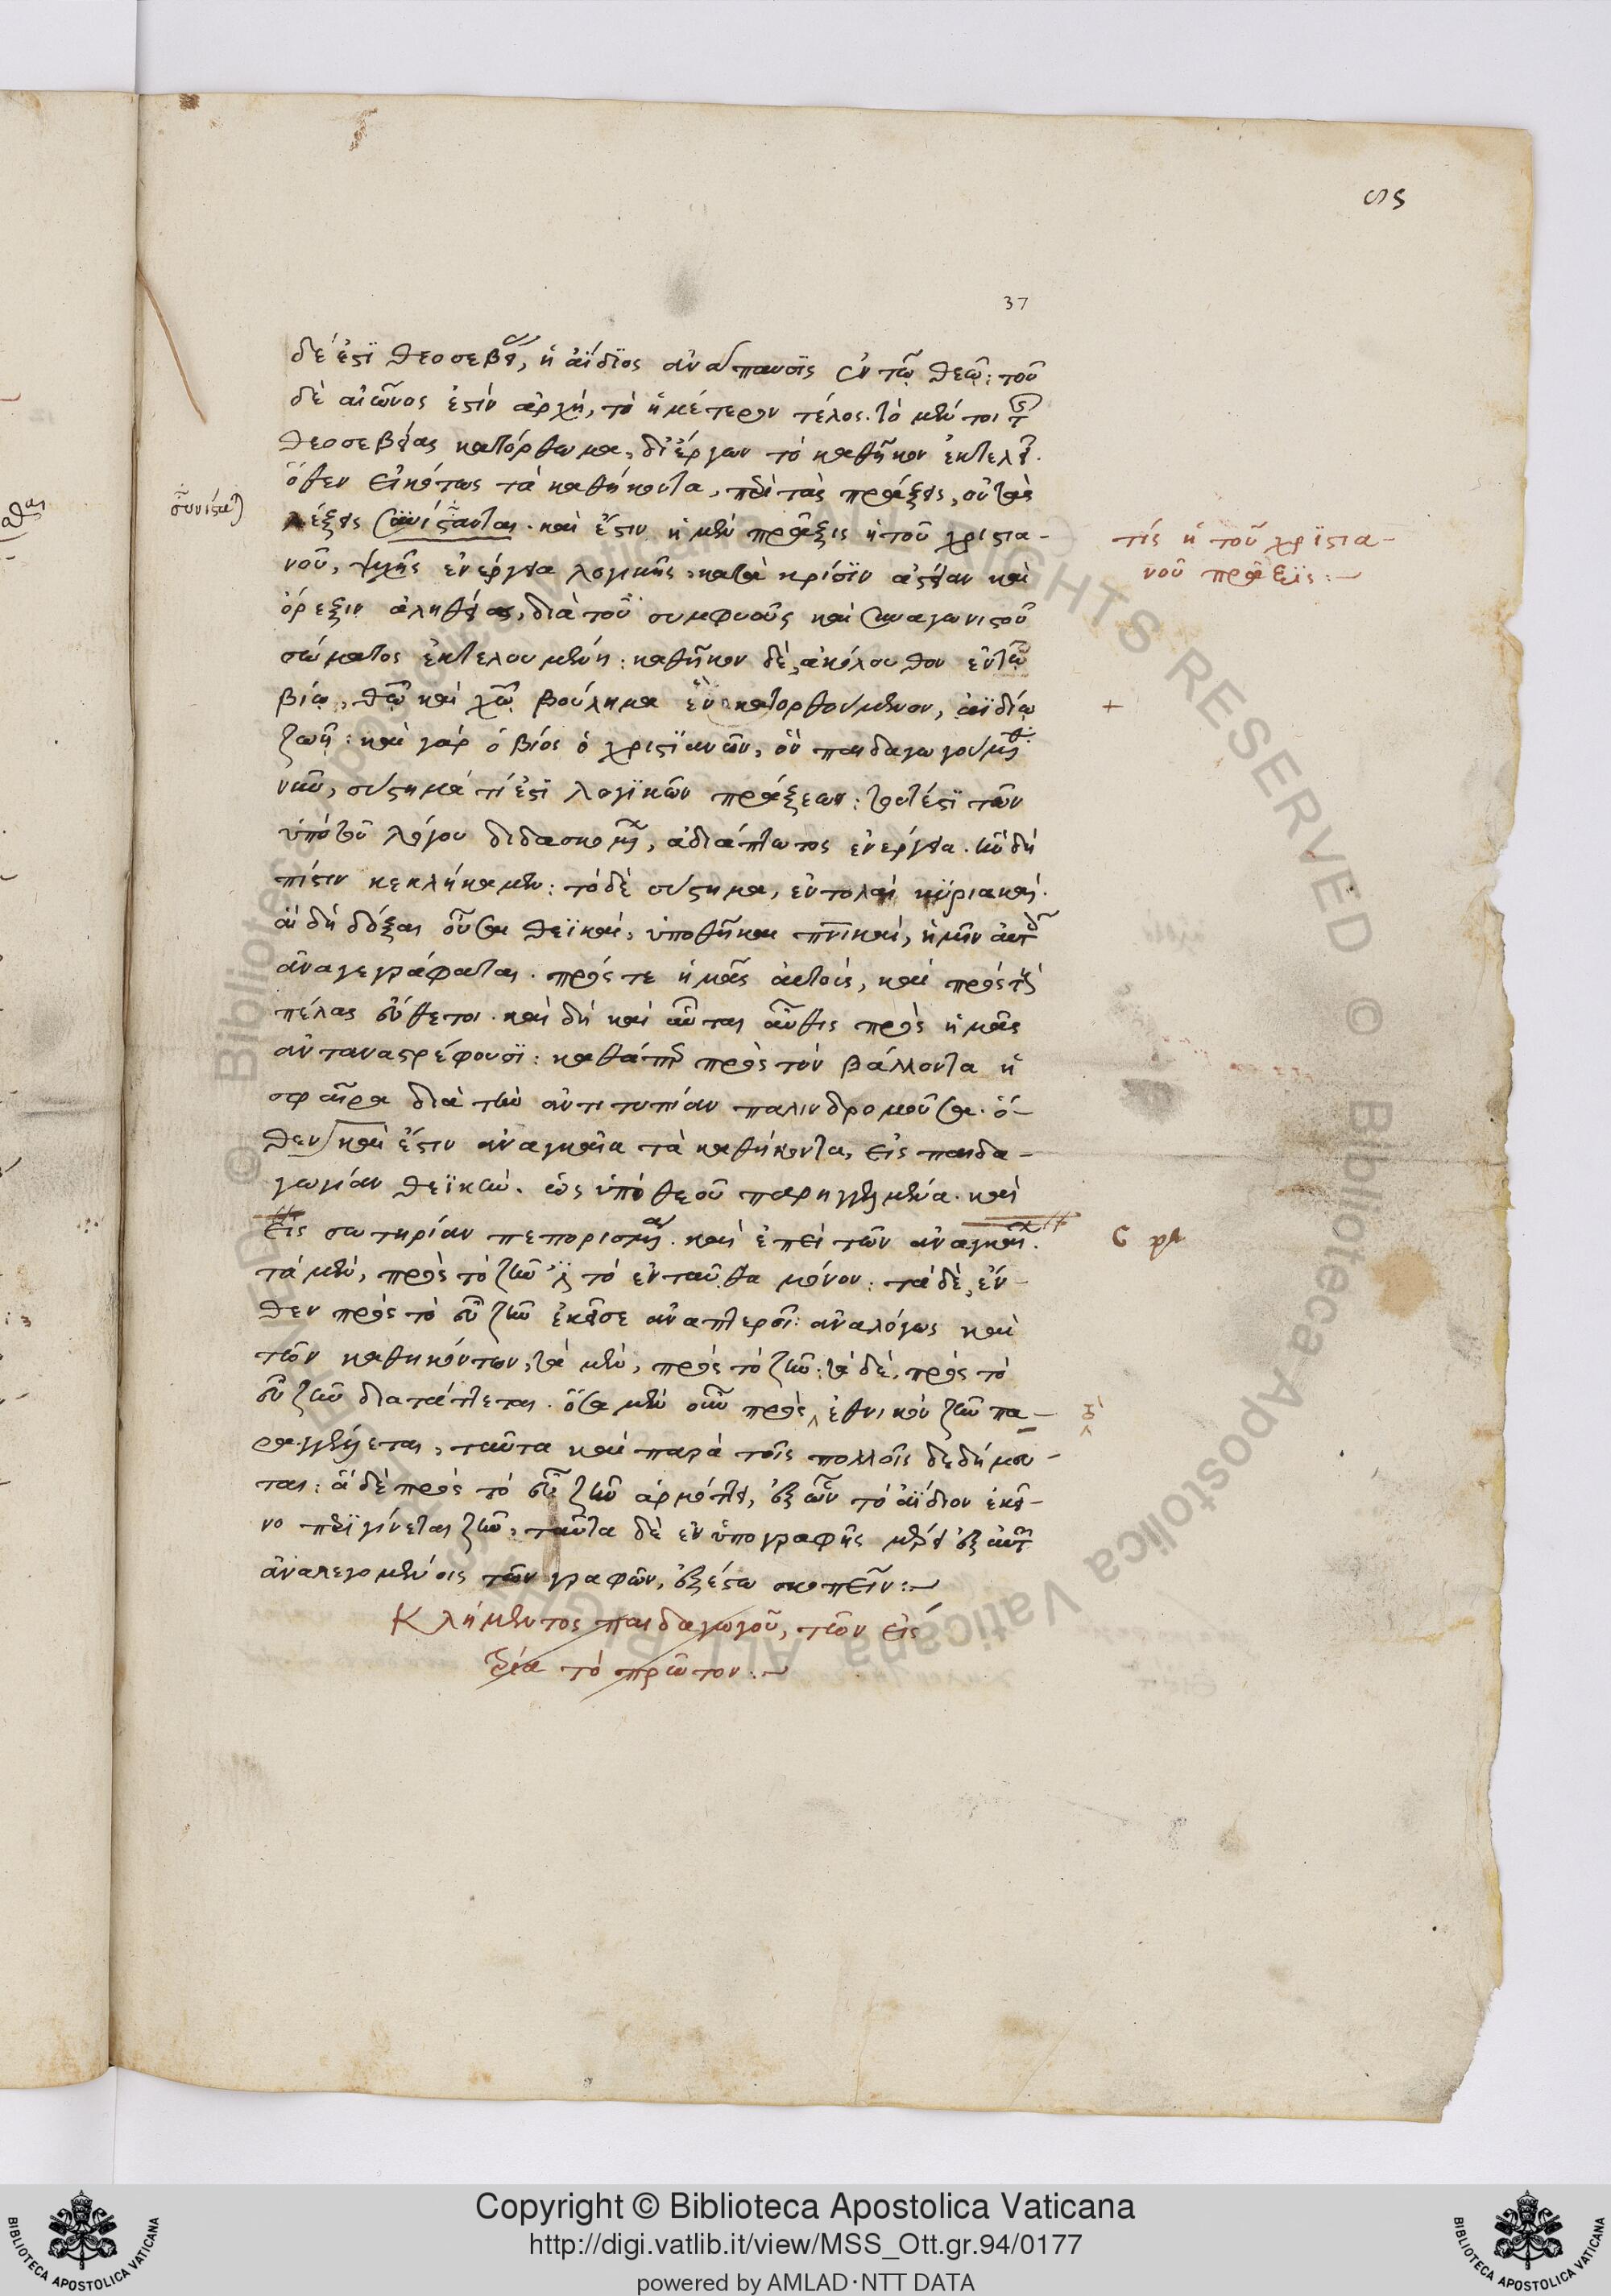 ϟς
37
δέ ἐστι θεοσεβείας, ἡ ἀΐδιος ἀνάπαυσις ἐν τῷ θεῷ: τοῦ
δὲ αἰῶνος ἐστὶν ἀρχή, τὸ ἡμέτερον τέλος. τό μέν τοι τῆς
θεοσεβείας κατόρθωμα, δι' ἔργων τὸ καθῆκον ἐκτελεῖ.
ὅθεν εἰκότως τὰ καθήκοντα, περὶ τὰς πράξεις, οὐ τὰς
λέξεις συνίσταται. καὶ ἔστιν ἡ μὲν πρᾶξις ἡ τοῦ χριστια-
νοῦ, ψυχῆς ἐνέργεια λογικῆς, κατὰ κρίσιν ἀστείαν καὶ
ὄρεξιν ἀληθείας, διὰ τοῦ συμφυοῦς καὶ συναγωνιστοῦ
σώματος ἐκτελουμένη: καθῆκον δὲ, ἀκόλουθον ἐν τῷ
βίῳ, θεῷ καὶ χῶ βούλημα ἓν κατορθούμενον, ἀϊδίῳ
ζωῇ: καὶ γὰρ ὁ βίος ὁ χριστϊανῶν, ὃν παιδαγωγούμεθα
νῦν, σύστημά τί ἐστι λογικῶν πράξεων: τουτέστι τῶν
ὑπὸ τοῦ λόγου διδασκομένων, ἀδιάπτωτος ἐνέργεια. ἣν δὴ
πίστιν κεκλήκαμεν: τὸ δὲ σύστημα, ἐντολαὶ κυριακαί.
αἳ δὴ δόξαι οὖσαι θεϊκαί, ὑποθῆκαι πνικαί, ἡμῖν αὐτοῖς
ἀναγεγράφαται. πρός τε ἡμᾶς αὐτούς, καὶ πρὸς τοὺς
πέλας εὔθετοι. καὶ δὴ καὶ αὗται αὖθις πρὸς ἡμᾶς
ἀνταναστρέφουσι: καθάπερ πρὸς τὸν βάλλοντα ἡ
σφαῖρα διὰ τὴν ἀντιτυπίαν παλινδρομοῦσα. ὅ-
θεν καὶ ἔστιν ἀναγκαῖα τὰ καθήκοντα, εἰς παιδα-
γωγίαν θεϊκήν. ὡς ὑπὸ θεοῦ παρηγγελμένα. καὶ
εἰς σωτηρίαν πεπορισμένα. καὶ ἐπεὶ τῶν ἀναγκαίων.
τὰ μὲν, πρὸς τὸ ζῆν ἐστι τὸ ἐνταῦθα μόνον: τὰ δὲ, ἐν-
θεν πρὸς τὸ εὖ ζῆν ἐκεῖσε ἀναπτεροῖ: ἀναλόγως καὶ
τῶν καθηκόντων, τὰ μὲν, πρὸς τὸ ζῆν: τὰ δὲ, πρὸς τὸ
εὖ ζῆν διατάττεται. ὅσα μὲν οὖν πρὸς ἐθνικὸν ζῆν πα-
ραγγέλλεται, ταῦτα καὶ παρὰ τοῖς πολλοῖς δεδήμευ-
ται: ἃ δὲ πρὸς τὸ εὖ ζῆν ἁρμόττει, ἐξ ὧν τὸ ἀΐδιον ἐκεῖ-
νο περιγίνεται ζῆν, ταῦτα δὲ ἐν ὑπογραφῆς μέρει ἐξ αὐτῶν
ἀναλεγομένοις τῶν γραφῶν, ἐξέστω σκοπεῖν:—
Κλήμεντος παιδαγωγοῦ, τῶν εἰς
τρία τὸ πρῶτον:—
συνίστατ
τίς ἡ τοῦ χριστια-
νοῦ πρᾶξις:—
+